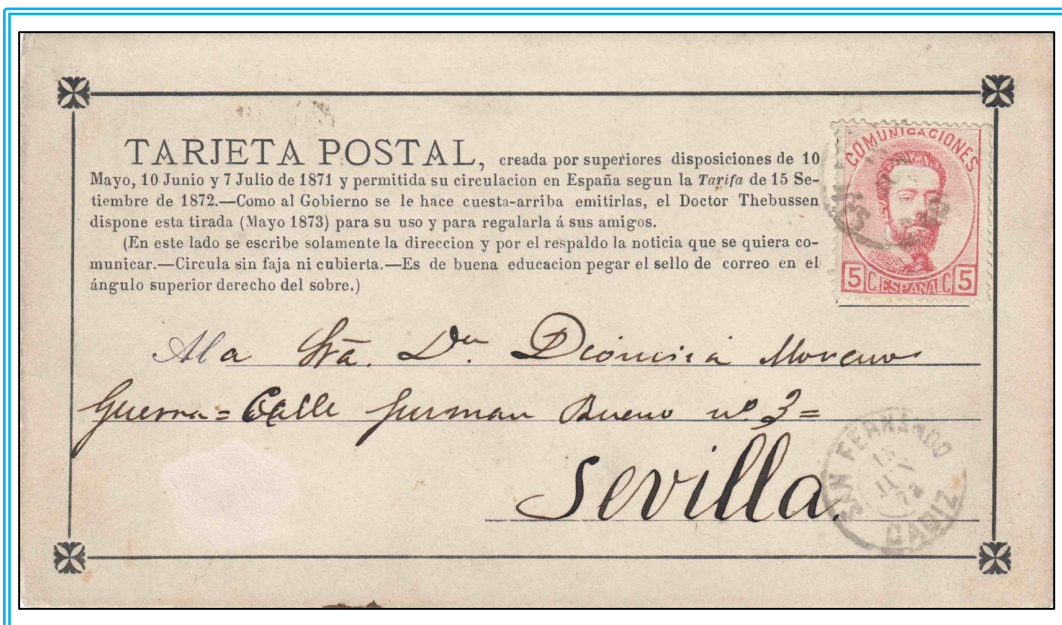 TARJETA POSTAL, creada por superiores disposiciones de 10
Mayo, 10 Junio y 7 Julio de 1871 y permitida su circulacion en España segun la Tarifa de 15 Se-
tiembre de 1872.—Como al Gobierno se le hace cuesta-arriba emitirlas, el Doctor Thebussen
dispone esta tirada (Mayo 1873) para su uso y para regalarla á sus amigos.
(En este lado se escribe solamente la direccion y por el respaldo la noticia que se quiera co-
municar.—Circula sin faja ni cubierta.—Es de buena educacion pegar el sello de correo en el
ángulo superior derecho del sobre.)
COMUNICACIONES
5 C. ESPAÑA C. 5
A la Srã. Dª Dionisia Moreno
Guerra = Calle Gusman Bueno nº 3 =
Sevilla.
SAN FERNANDO
CADIZ